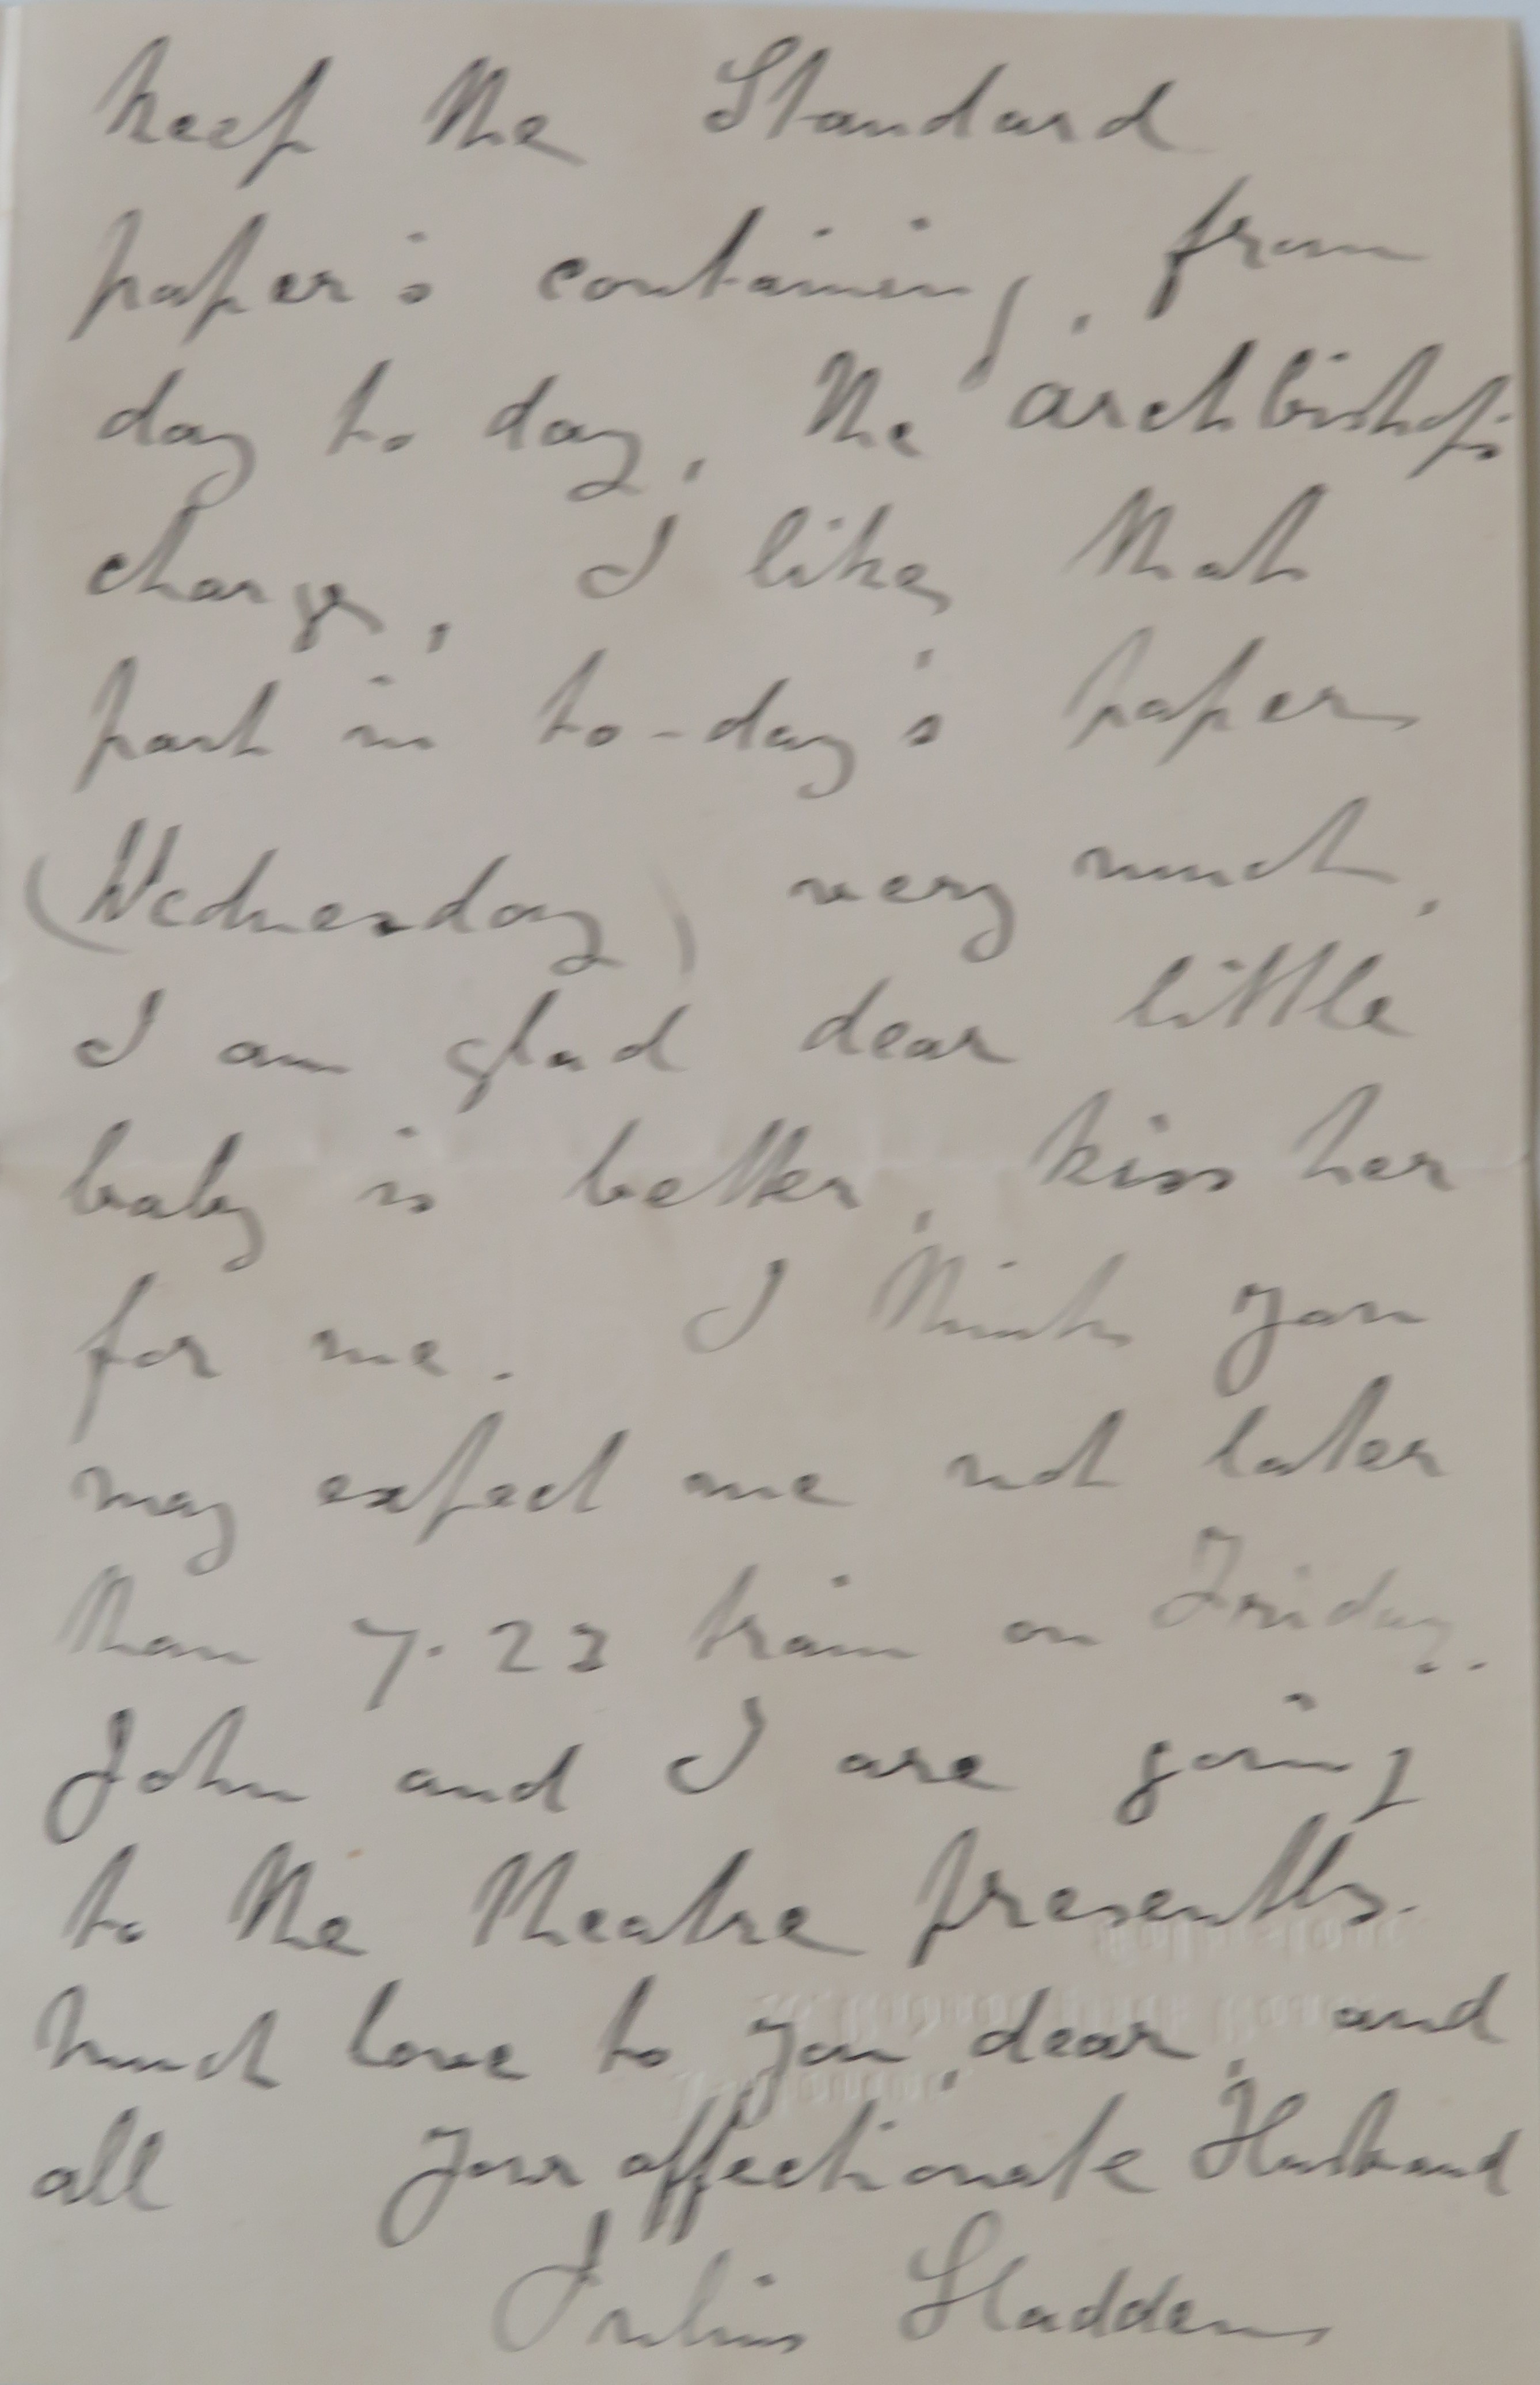 keep the Standard
paper's containing, from
day to day, the archbishop's
charge, I like that
part in to-day's paper
(Wednesday) very much.
I am glad dear little
baby is better, kiss her
for me. I think you
may expect me not later
than 7.23 train on Friday.
John and I are going
to the theatre presently.
Much love to you, dear, and
all your affectionate Husband
Julius Sladden